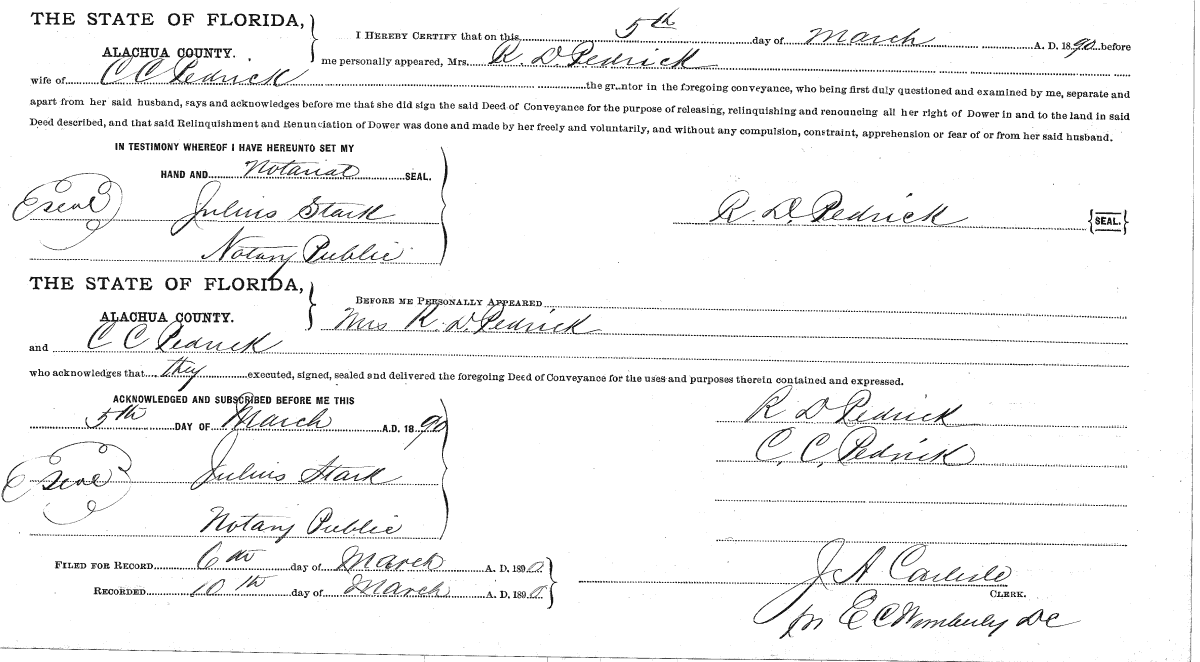 THE STATE OF FLORIDA,
ALACHUA COUNTY.
I HEREBY CERTIFY that on this 5th day of March A. D. 1890 before
me personally appeared, Mrs. R. D. Pedrick
wife of C C Pedrick the gr..ntor in the foregoing conveyance, who being first duly questioned and examined by me, separate and
apart from her said husband, says and acknowledges before me that she did sign the said Deed of Conveyance for the purpose of releasing, relinquishing and renouncing all her right of Dower in and to the land in said
Deed described, and that said Relinquishment and Renunciation of Dower was done and made by her freely and voluntarily, and without any compulsion, constraint, apprehension or fear of or from her said husband.
IN TESTIMONY WHEREOF I HAVE HEREUNTO SET MY
HAND AND Notarial SEAL.
Seal Julius Stark
R. D. Pedrick {SEAL.}
Notary Public
THE STATE OF FLORIDA,
ALACHUA COUNTY.
BEFORE ME PERSONALLY APPEARED
Mrs R. D. Pedrick
and C C Pedrick
who acknowledges that they executed, signed, sealed and delivered the foregoing Deed of Conveyance for the uses and purposes therein contained and expressed.
ACKNOWLEDGED AND SUBSCRIBED BEFORE ME THIS
5th DAY OF March A.D. 1890
R D Pedrick
C. C. Pedrick
Seal Julius Stark
Notary Public
FILED FOR RECORD 6th day of March A. D. 1890
RECORDED 10th day of March A. D. 1890
J A Carlisle
CLERK.
pr E C Wimberly DC